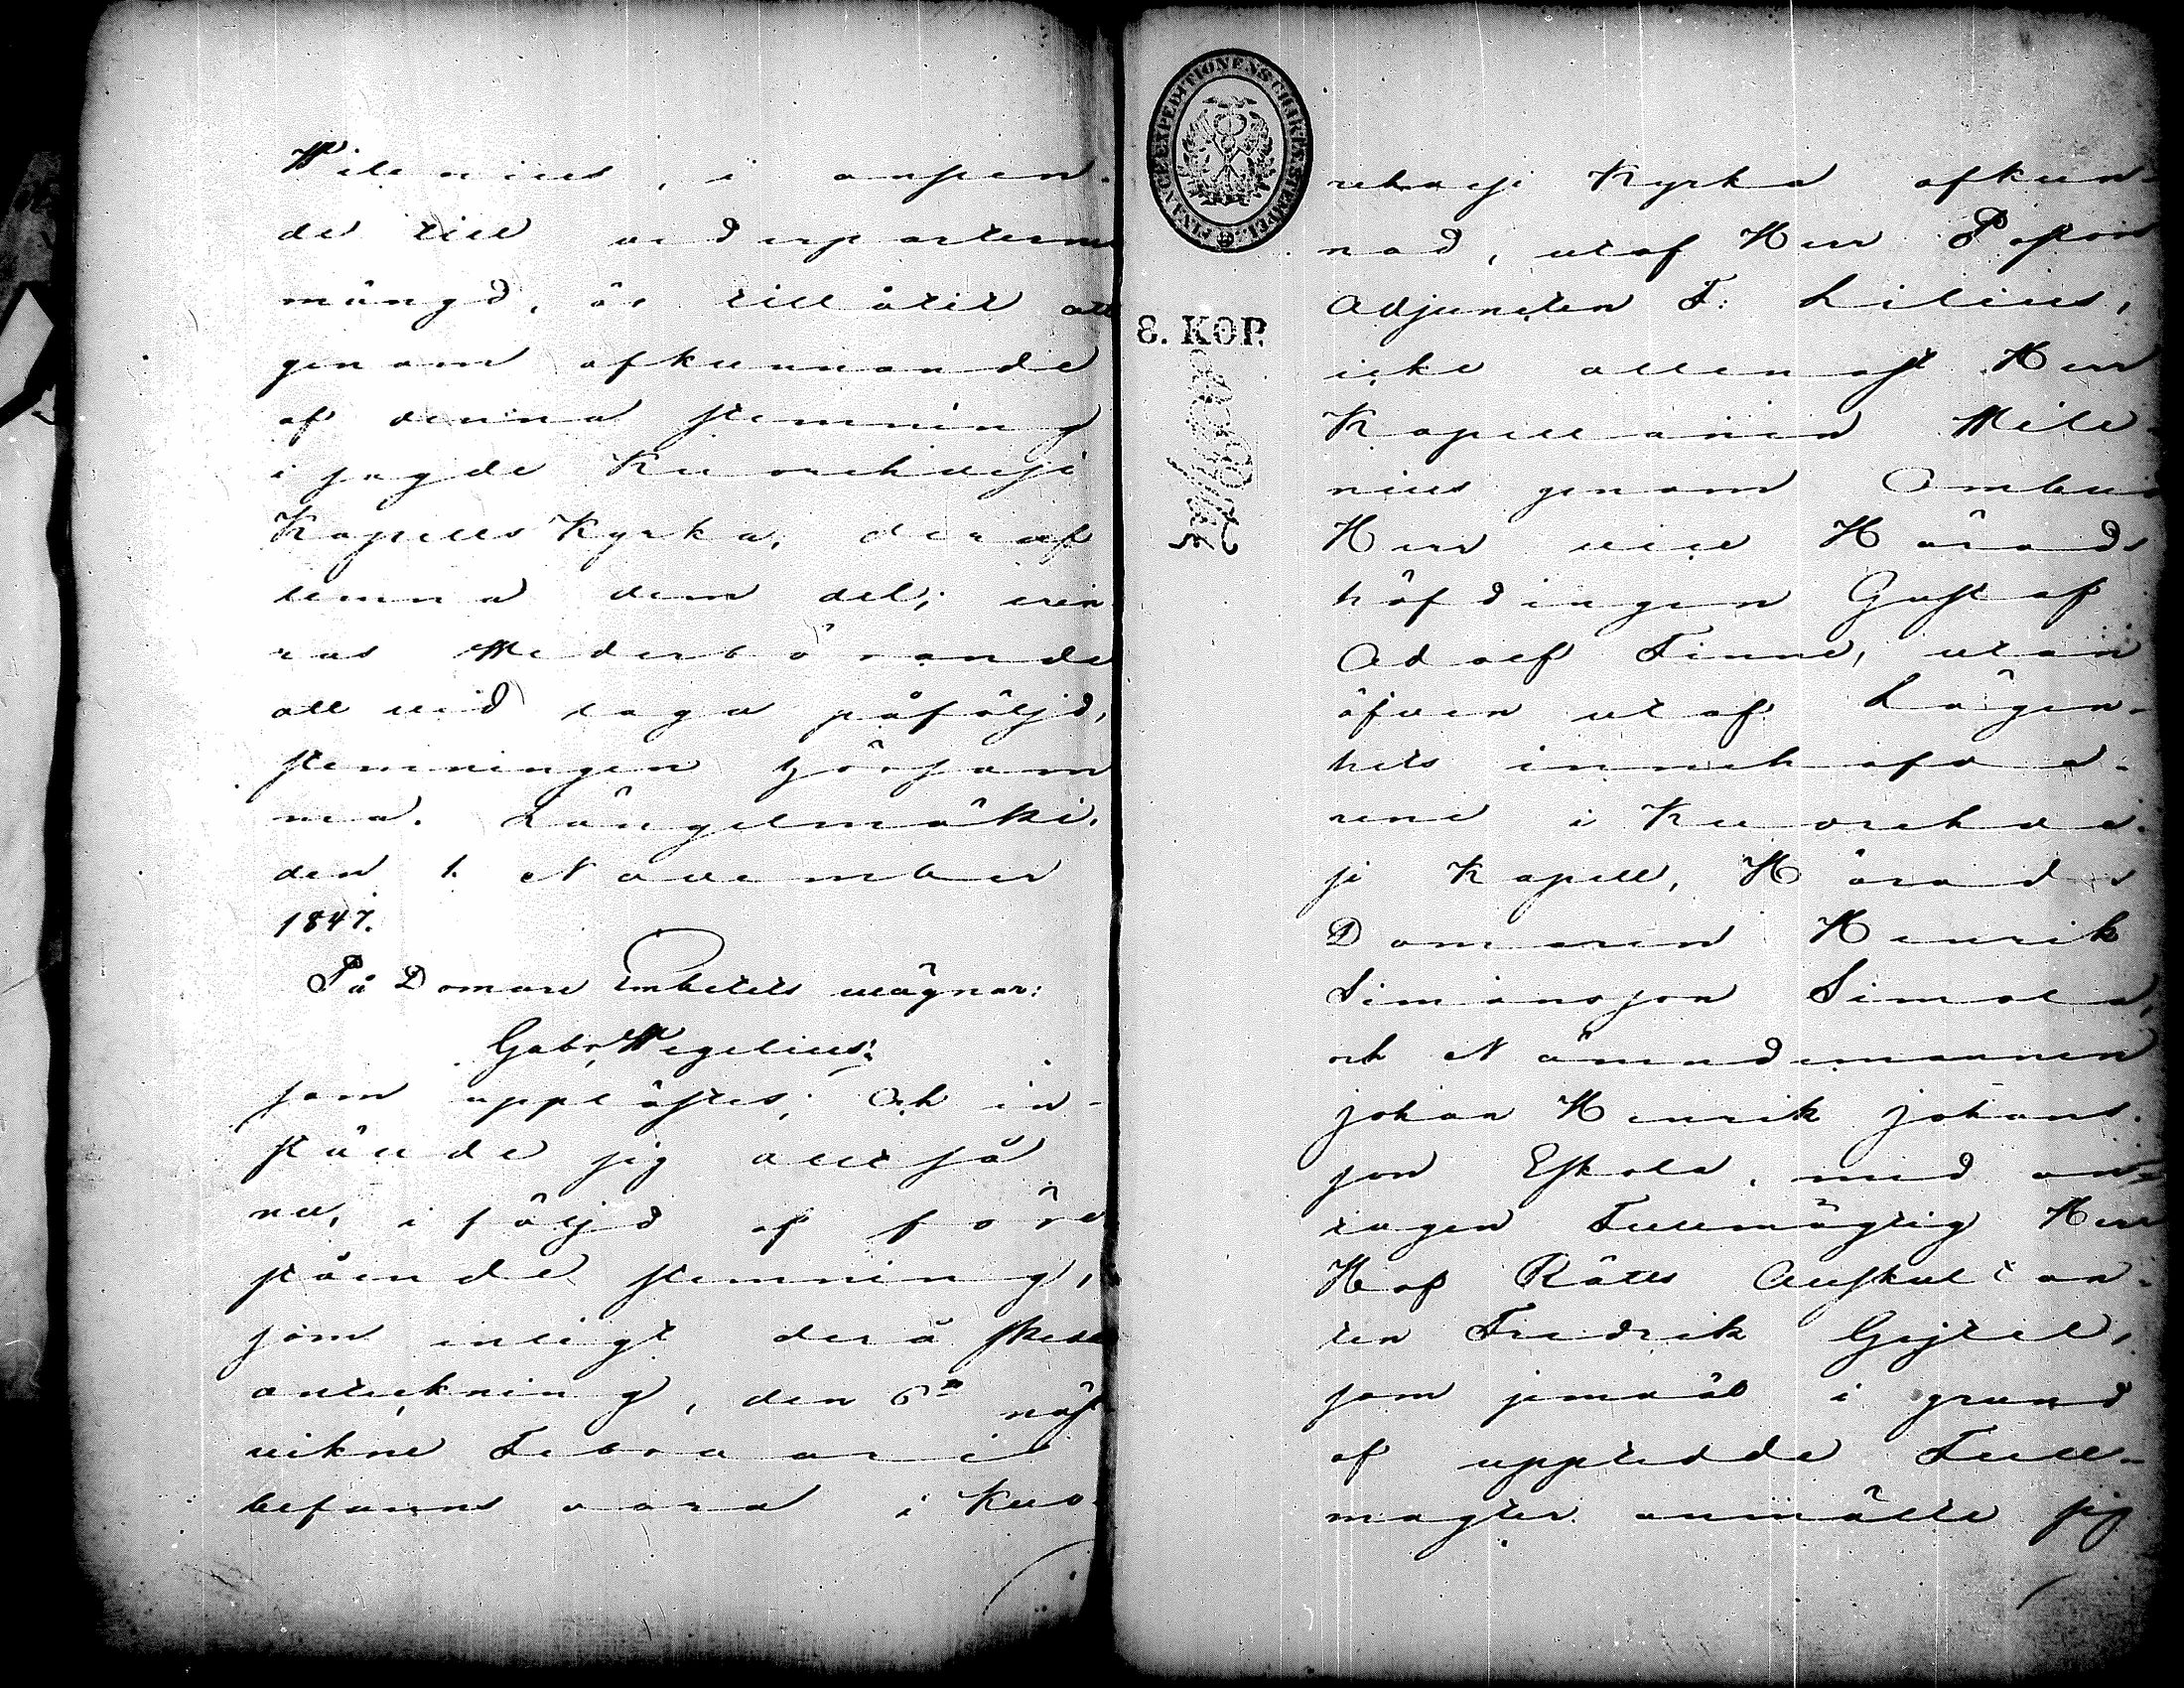 Wilenius, i anseen-
de till vederparternes
mängd, är tillåtit att
genom afkunnande
af denna stemning
i sagde Kuorehvesi
Kapells Kyrka, deraf
lemna dem del; erin-
ras Wederbörande
att vid laga påföljd,
stemningen hörsam-
ma. Längelmäki,
den 1. November
1847.
På Domare Embetets vägnar:
Gabr. Wegelius;
som upplästes; Och in-
stände sig alltså
nu, i följd af före
stående stemning,
som enligt derå skedd
anteckning, den 6te näst
vikne Februarii
befanns vara i Kuo-
FINANCE EXPEDITIONENS CHARTÆ STEMPEL
8. KOP.
rehvesi Kyrka afkun-
nad, utaf Herr Pastors
Adjuncten F. Lilius,
icke allenast Herr
Kapellanen Wile-
nius genom Ombud
Herr vice Härads
höfdingen Gustaf
Adolf Finne, utan
äfven utaf Lägen-
hets innehafva-
rene i Kuorehve-
si Kapell, Härads
Domaren Henrik
Simonsson Simola,
och Nämndemannen
Johan Henrik Johans-
son Eskola, med an-
tagen Fullmägtig Herr
Hof Rätts Auskultan-
ten Fredrik Gejtel,
som jemväl i grund
af uppredde Full-
magter anmälte sig